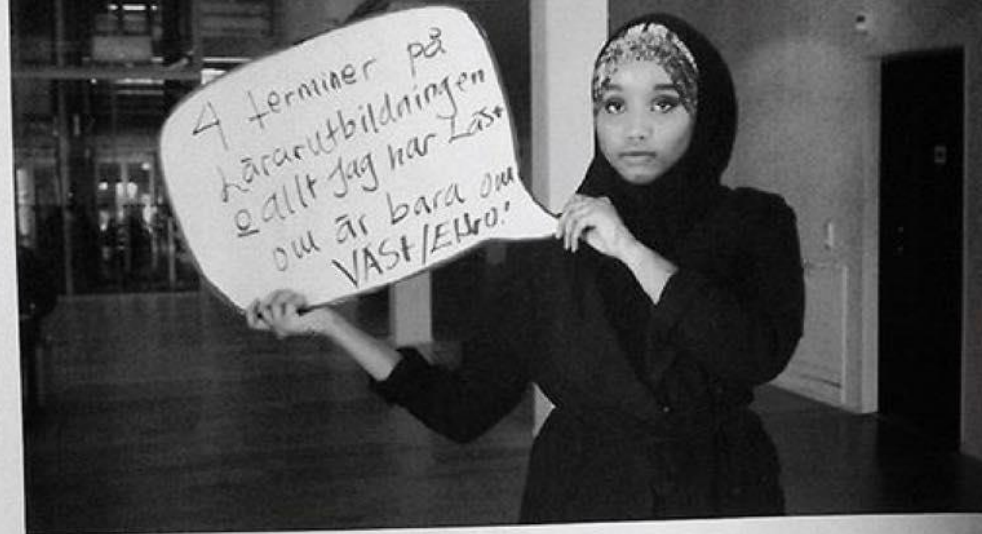 4 terminer på
Lärarutbildningen
o allt jag har Läst
om är bara om
VÄST/EURO!